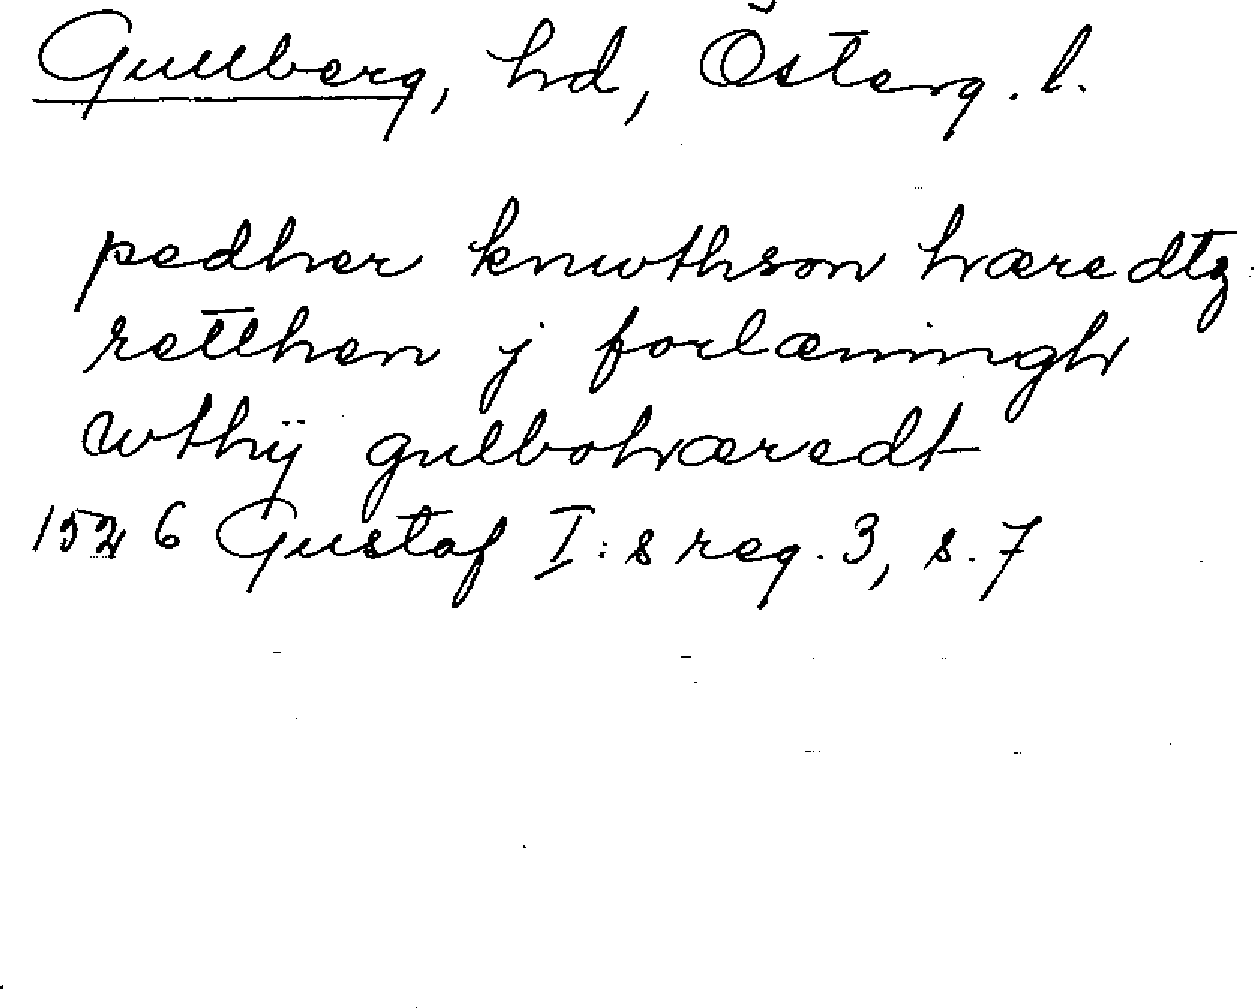 Gullberg, hd, Österg. l.
pedher knwthson hæredtz
retthen j forlæningh
wthÿ gulbohæredt
1526 Gustaf I:s reg. 3, s. 7